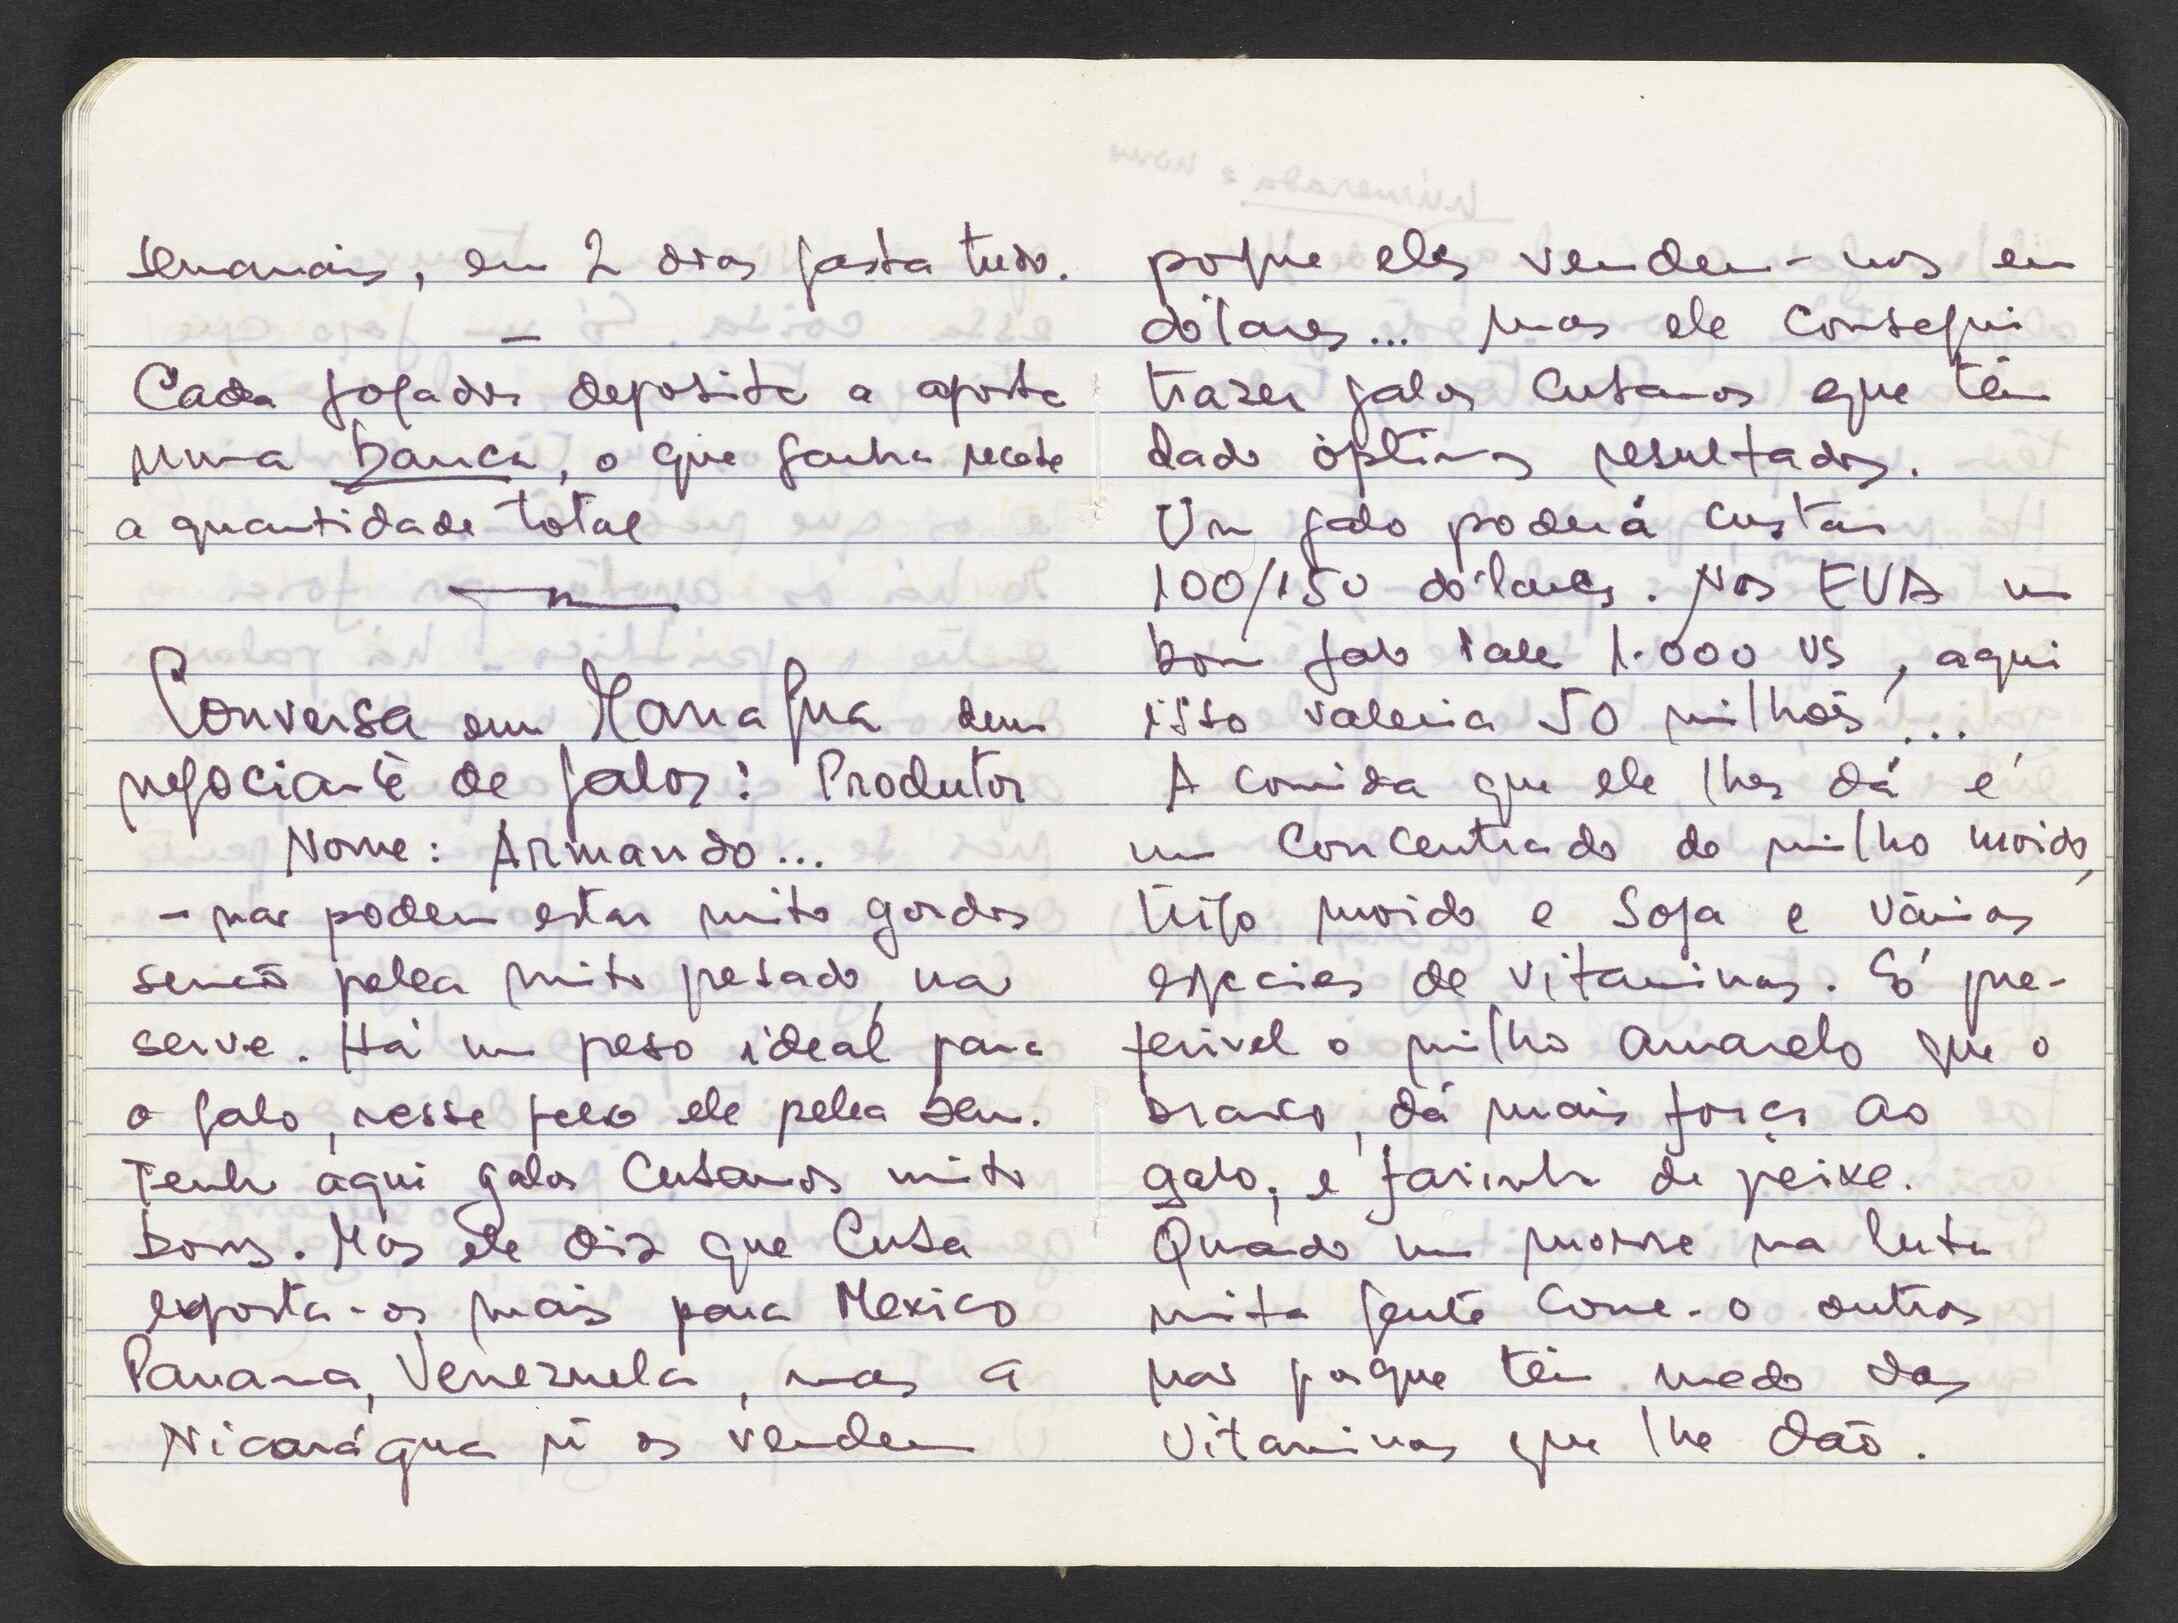 semanais, em 2 dias gasta tudo.
—
Cada jogador deposita a aposta
numa banca, o que ganha recebe
a quantidade total
Conversa em Managua dum
negociante de galos: Produtor
Nome: Armando...
- não podem estar muito gordos
senão pelea muito pesado, não
serve. Há um peso ideal para
o galo, nesse peso ele pelea bem.
Tenho aqui galos Cubanos muito
bons. Mas ele diz que Cuba
exporta-os mais para Mexico
Panama, Venezuela, mas a
Nicarágua ñ os vendem
porque eles vendem-nos em
dólares... mas ele consegui
trazer galos Cubanos que têm
dado óptimos resultados.
Um galo poderá custar
100/150 dólares. Nos EUA um
bom galo vale 1.000 US, aqui
isso valeria 50 milhões!...
A comida que ele lhes dá é
um concentrado de milho moido,
trigo moido e soja e várias
especies de vitaminas. É pre-
ferivel o milho amarelo que o
branco, dá mais força ao
galo, e farinha de peixe.
Quando um morre na luta
muita gente come-o outros
não porque têm medo das
vitaminas que lhe dão.